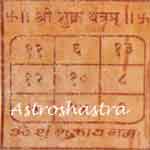 卐॥ श्री शुक्र यंत्रम् ॥卐
११ ६ १३
१२ १० ८
Astroshastra
ॐ शुं शुक्राय नमः